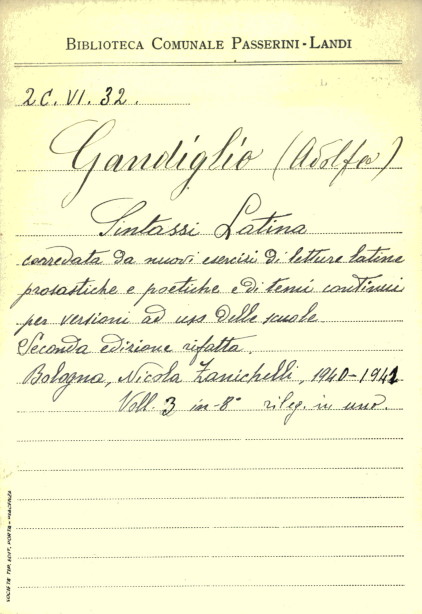 BIBLIOTECA COMUNALE PASSERINI-LANDI
2C. VI. 32.
Gandiglio (Adolfo)
Sintassi Latina
corredata da nuovi esercizi di letture latine
prosastiche e poetiche e di temi continui
per versioni ad uso delle scuole.
Seconda edizione rifatta.
Bologna, Nicola Zanichelli, 1940-1941
Voll. 3 in-8° rileg. in uno.